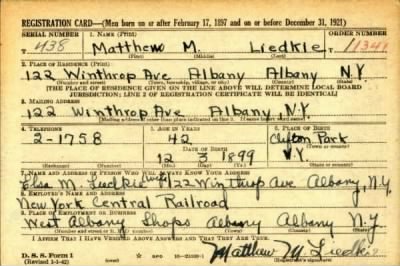 REGISTRATION CARD—(Men born on or after February 17, 1897 and on or before December 31, 1921)
SERIAL NUMBER 1. NAME (Print) ORDER NUMBER
438 Matthew M. Liedkie 11341
(First) (Middle) (Last)
2. PLACE OF RESIDENCE (Print)
122 Winthrop Ave Albany Albany N.Y.
(Number and street) (Town, township, village, or city) (County) (State)
[THE PLACE OF RESIDENCE GIVEN ON THE LINE ABOVE WILL DETERMINE LOCAL BOARD
JURISDICTION; LINE 2 OF REGISTRATION CERTIFICATE WILL BE IDENTICAL]
3. MAILING ADDRESS
122 Winthrop Ave Albany N.Y
[Mailing address if other than place indicated on line 2. If same insert word same]
4. TELEPHONE 5. AGE IN YEARS 6. PLACE OF BIRTH
2-1758 42 Clifton Park
DATE OF BIRTH (Town or county)
12 3 1899 N.Y.
(Exchange) (Number) (Mo.) (Day) (Yr.) (State or country)
7. NAME AND ADDRESS OF PERSON WHO WILL ALWAYS KNOW YOUR ADDRESS
Elsa M. Liedkie (wife) 122 Winthrop Ave Albany, N.Y.
8. EMPLOYER'S NAME AND ADDRESS
New York Central Railroad
9. PLACE OF EMPLOYMENT OR BUSINESS
West Albany Shops Albany Albany N.Y
I AFFIRM THAT I HAVE VERIFIED ABOVE ANSWERS AND THAT THEY ARE TRUE.
D. S. S. Form 1
(Revised 3-3-42) GPO 16-21630-1 Matthew M Liedkie